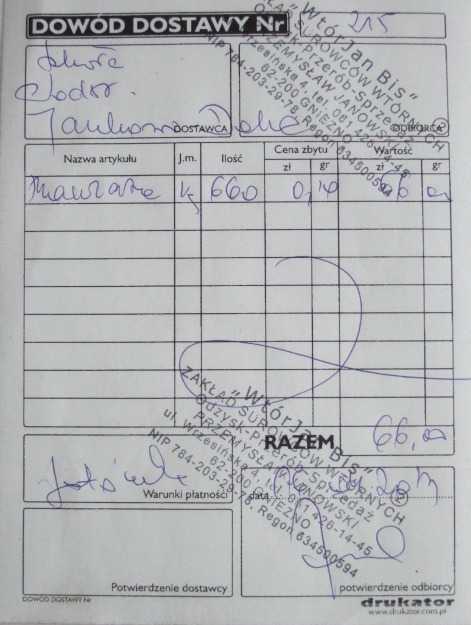 DOWÓD DOSTAWY Nr 215
Szkoła
Podst.
DOSTAWCA
ODBIORCA
"WtórJan Bis"
ZAKŁAD SUROWCÓW WTÓRNYCH
Odzysk-Przerób-Sprzedaż
PRZEMYSŁAW JANOWSKI
62-200 GNIEZNO
ul. Wrzesińska 4, tel. 061 426-14-45
NIP 784-203-29-76, Regon 634500594
Nazwa artykułu J.m. Ilość Cena zbytu Wartość
zł gr zł gr
kg 660 0,10 66,00
"WtórJan Bis"
ZAKŁAD SUROWCÓW WTÓRNYCH
Odzysk-Przerób-Sprzedaż
PRZEMYSŁAW JANOWSKI
62-200 GNIEZNO
ul. Wrzesińska 4, tel. 061 426-14-45
NIP 784-203-29-76, Regon 634500594
RAZEM 66,00
gotówka
Warunki płatności
data
Potwierdzenie dostawcy
potwierdzenie odbiorcy
DOWÓD DOSTAWY Nr
drukator
www.drukator.com.pl